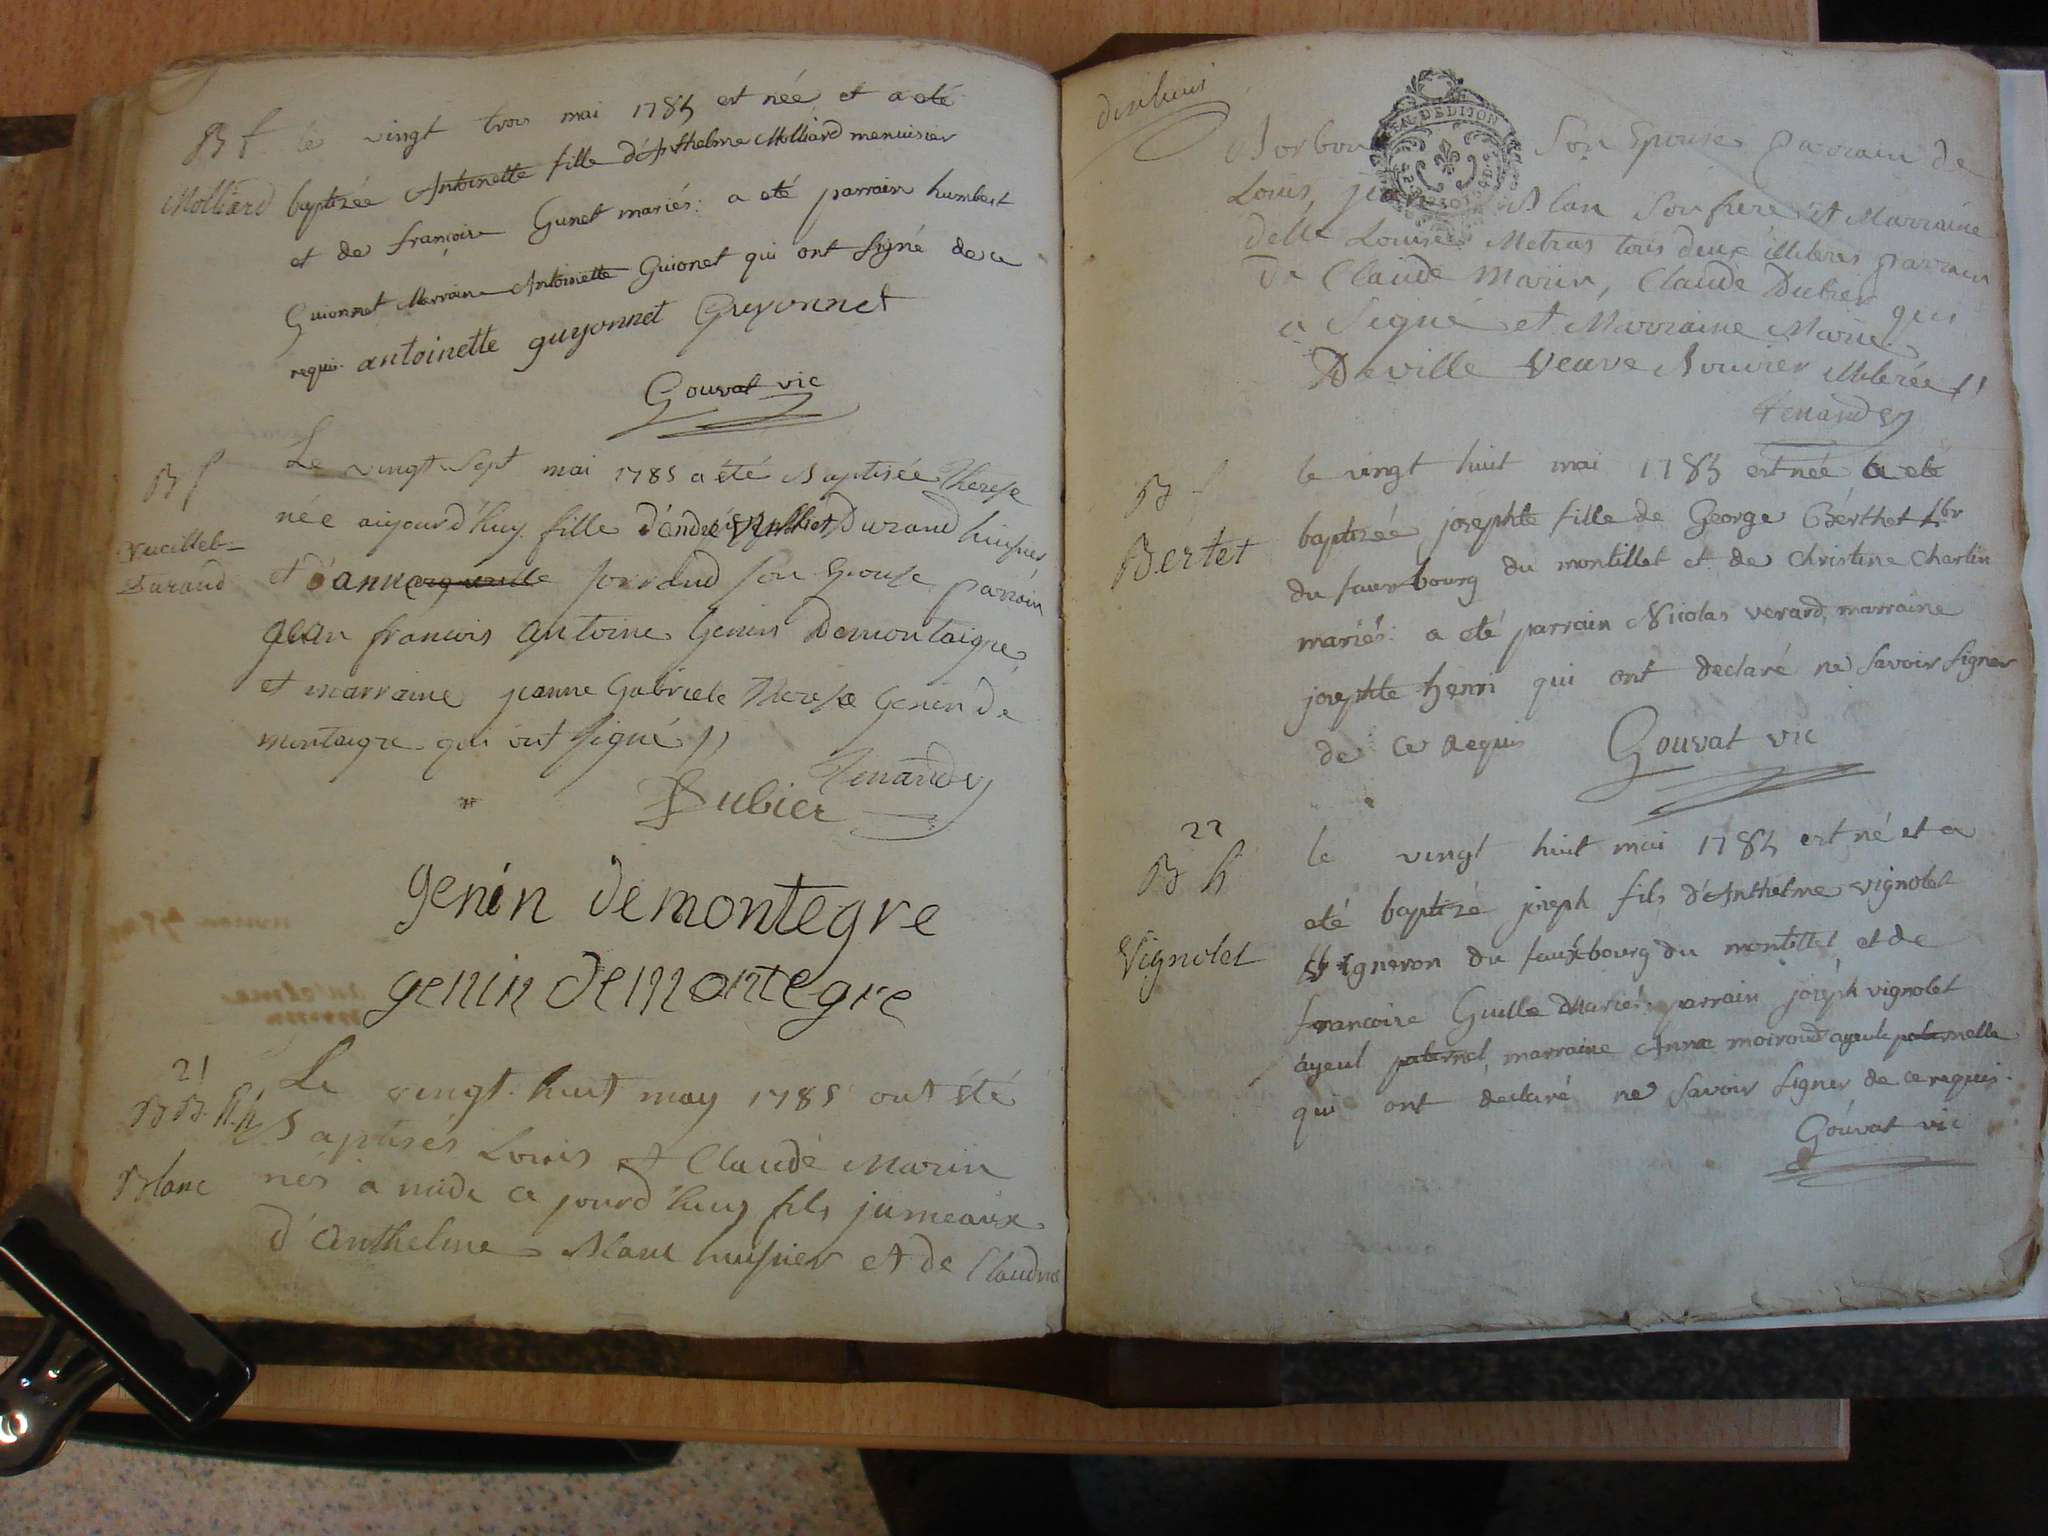 B f. le vingt trois mai 1785 est née et a eté
Molliard baptizée Antoinette fille d'Anthelme Molliard menuisier
et de françoise Gunet mariés: a eté parrain humbert
Guionnet Marraine Antoinette Guionet qui ont signé de ce
requis. antoinette guyonnet Guyonnet
Gouvat vic
B f
Le vingt sept mai 1785 a été Baptisée Therese
née aujourd'huy fille d'andré Durand huissier
Vueillet
Durand
et d'anne jorrand son Epouse parrain
jean francois antoine Genin Demontaigre
et marraine jeanne Gabriele Therese Genin de
montaigre qui ont signé //
Tenand
Dubier
genin demontegre
genin demontegre
21
BB. h.h
Le vingt huit may 1785 ont été
Baptisés Louis et Claude Marin
Blanc
nés a midi ce jourd'huy fils jumeaux
d'Anthelme Blanc huissier et de Claudine
dixhuit
EN DE DIJON
Borbon son Epouse parrain de
Louis, Blan son frere et Marraine
delle Louise Metras tous deux illiterés parrain
De Claude Marin, Claude Dubier qui
a Signé et Marraine Marie
Deville veuve Bouvier illiterée //
Tenand
B f
le vingt huit mai 1785 est née a eté
Bertet
baptizée josephte fille de George Bérthet
du fauxbourg du montillet et de christine Charlin
mariés: a eté parrain Nicolas verard, marraine
josephte henri qui ont declaré ne savoir signer
de ce requis Gouvat vic
22
B h
le vingt huit mai 1785 est né et a
eté baptizé joseph fils d'Anthelme vignolet
Vignolet
vigneron du fauxbourg du montillet et de
francoise Guille Mariés. parrain joseph vignolet
ayeul paternel, marraine Anne moiroud ayeule paternelle
qui ont declaré ne savoir signer de ce requis.
Gouvat vic